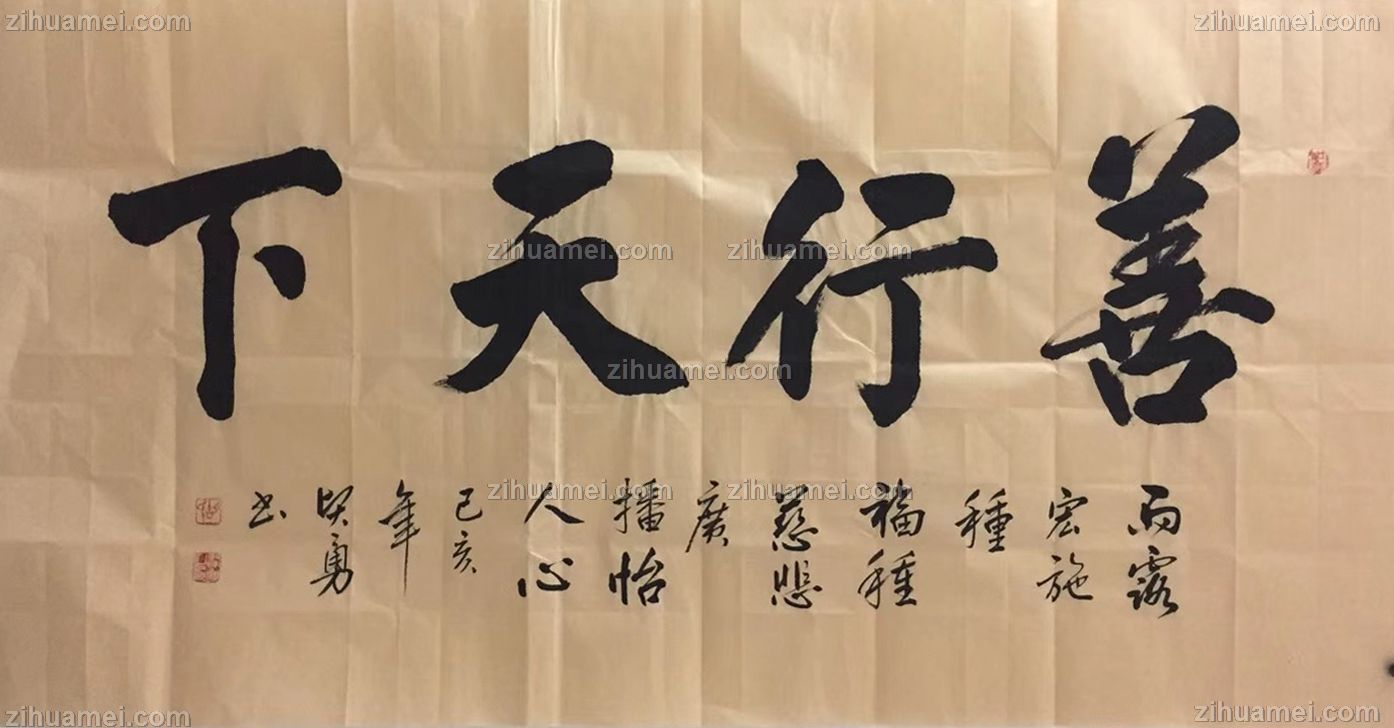 善行天下
雨露
宏施
種
福種
慈悲
廣
播怡
人心
己亥
年
勇
书
zihuamei.com
zihuamei.com
zihuamei.com
zihuamei.com
zihuamei.com
zihuamei.com
zihuamei.com
zihuamei.com
zihuamei.com